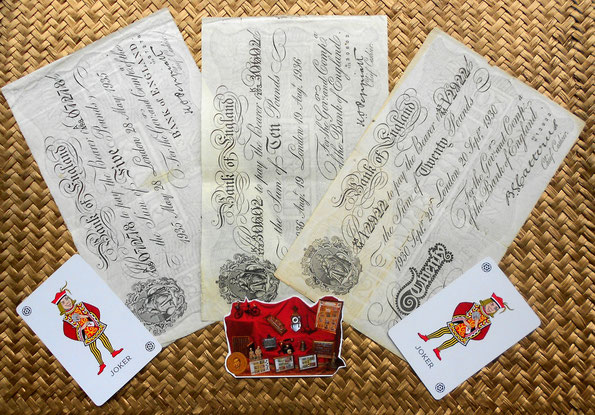 Bank of England
to pay the Bearer
the Sum of Five Pounds
1935 May 28 London 28 May 1935
For the Govr. and Compa. of the
BANK of ENGLAND
K O Peppiatt
Bank of England
30602 to pay the Bearer 30602
the Sum of Ten Pounds
Aug. 19 London 19 Aug. 1936
For the Govr. and Compa.
of the Bank of England
K O Peppiatt
Chief Cashier
Bank of England
to pay the Bearer
the Sum of Twenty Pounds
Sept. 20 London 20 Sept.
For the Govr. and Compa.
of the Bank of England
B G Catterns
Chief Cashier
Twenty
JOKER
JOKER